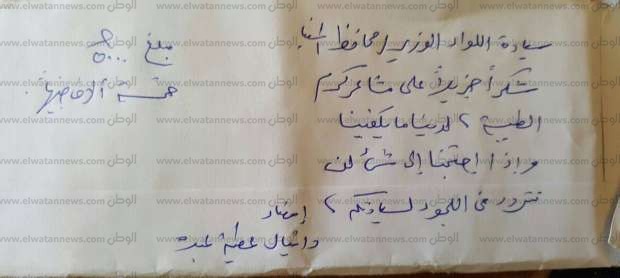 سيادة اللواء الوزير / محافظ المنيا
شكراً جزيلاً على مشاعركم
الطيبة ، لدينا ما يكفينا
وإذا إحتجنا إلى شئ لن
نتردد فى اللجوء لسيادتكم ،
إمضاء
دانيال عطية عبده
مبلغ ٥٠٠٠
خمسة ألاف جنيهاً
www.elwatannews.com الوطن